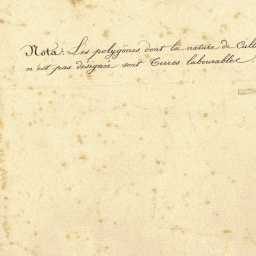 Nota: Les polygones dont la nature de Cult
n'est pas désignée sont Terres labourables.